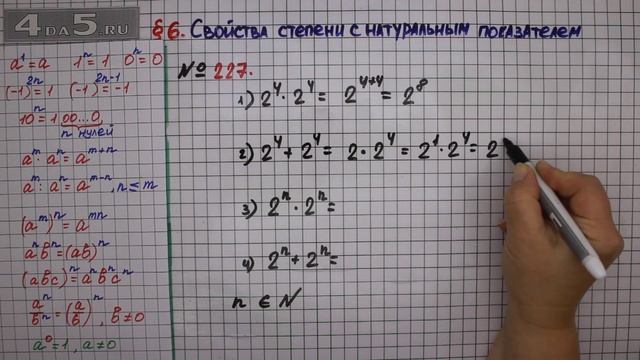 4DA5.RU
§ 6. Свойства степени с натуральным показателем
a¹ = a 1ⁿ = 1 0ⁿ = 0
(-1)²ⁿ = 1 (-1)²ⁿ⁻¹ = -1
10ⁿ = 1 00...0,
n нулей
aᵐ · aⁿ = aᵐ⁺ⁿ
aᵐ : aⁿ = aᵐ⁻ⁿ, n ≤ m
(aᵐ)ⁿ = aᵐⁿ
aⁿbⁿ = (ab)ⁿ
(abc)ⁿ = aⁿbⁿcⁿ
aⁿ/bⁿ = (a/b)ⁿ, b ≠ 0
a⁰ = 1, a ≠ 0
№ 227.
1) 2⁴ · 2⁴ = 2⁴⁺⁴ = 2⁸
2) 2⁴ + 2⁴ = 2 · 2⁴ = 2¹ · 2⁴ = 2
3) 2ⁿ · 2ⁿ =
4) 2ⁿ + 2ⁿ =
n ∈ N